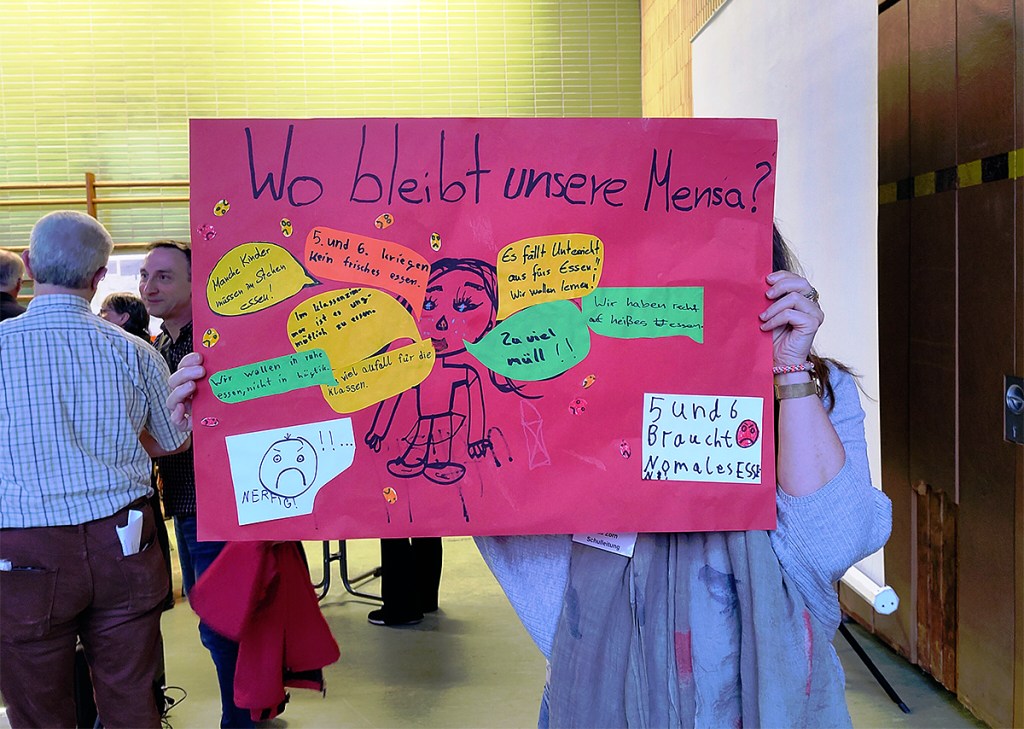 Wo bleibt unsere Mensa?
Manche Kinder
müssen im Stehen
essen!
5. und 6. kriegen
kein frisches essen.
Es fällt Unterricht
aus fürs Essen!!
Wir wollen lernen!
Im klassenzim-
mer ist es ung-
mütlich zu essen.
Zu viel
müll!!
Wir haben recht
auf heißes essen.
Wir wollen in ruhe
essen, nicht in hägtik.
viel aufall für die
klassen.
!!...
NERFIG!
5 und 6
Braucht
Nomales ESSE
N!!
Schulleitung